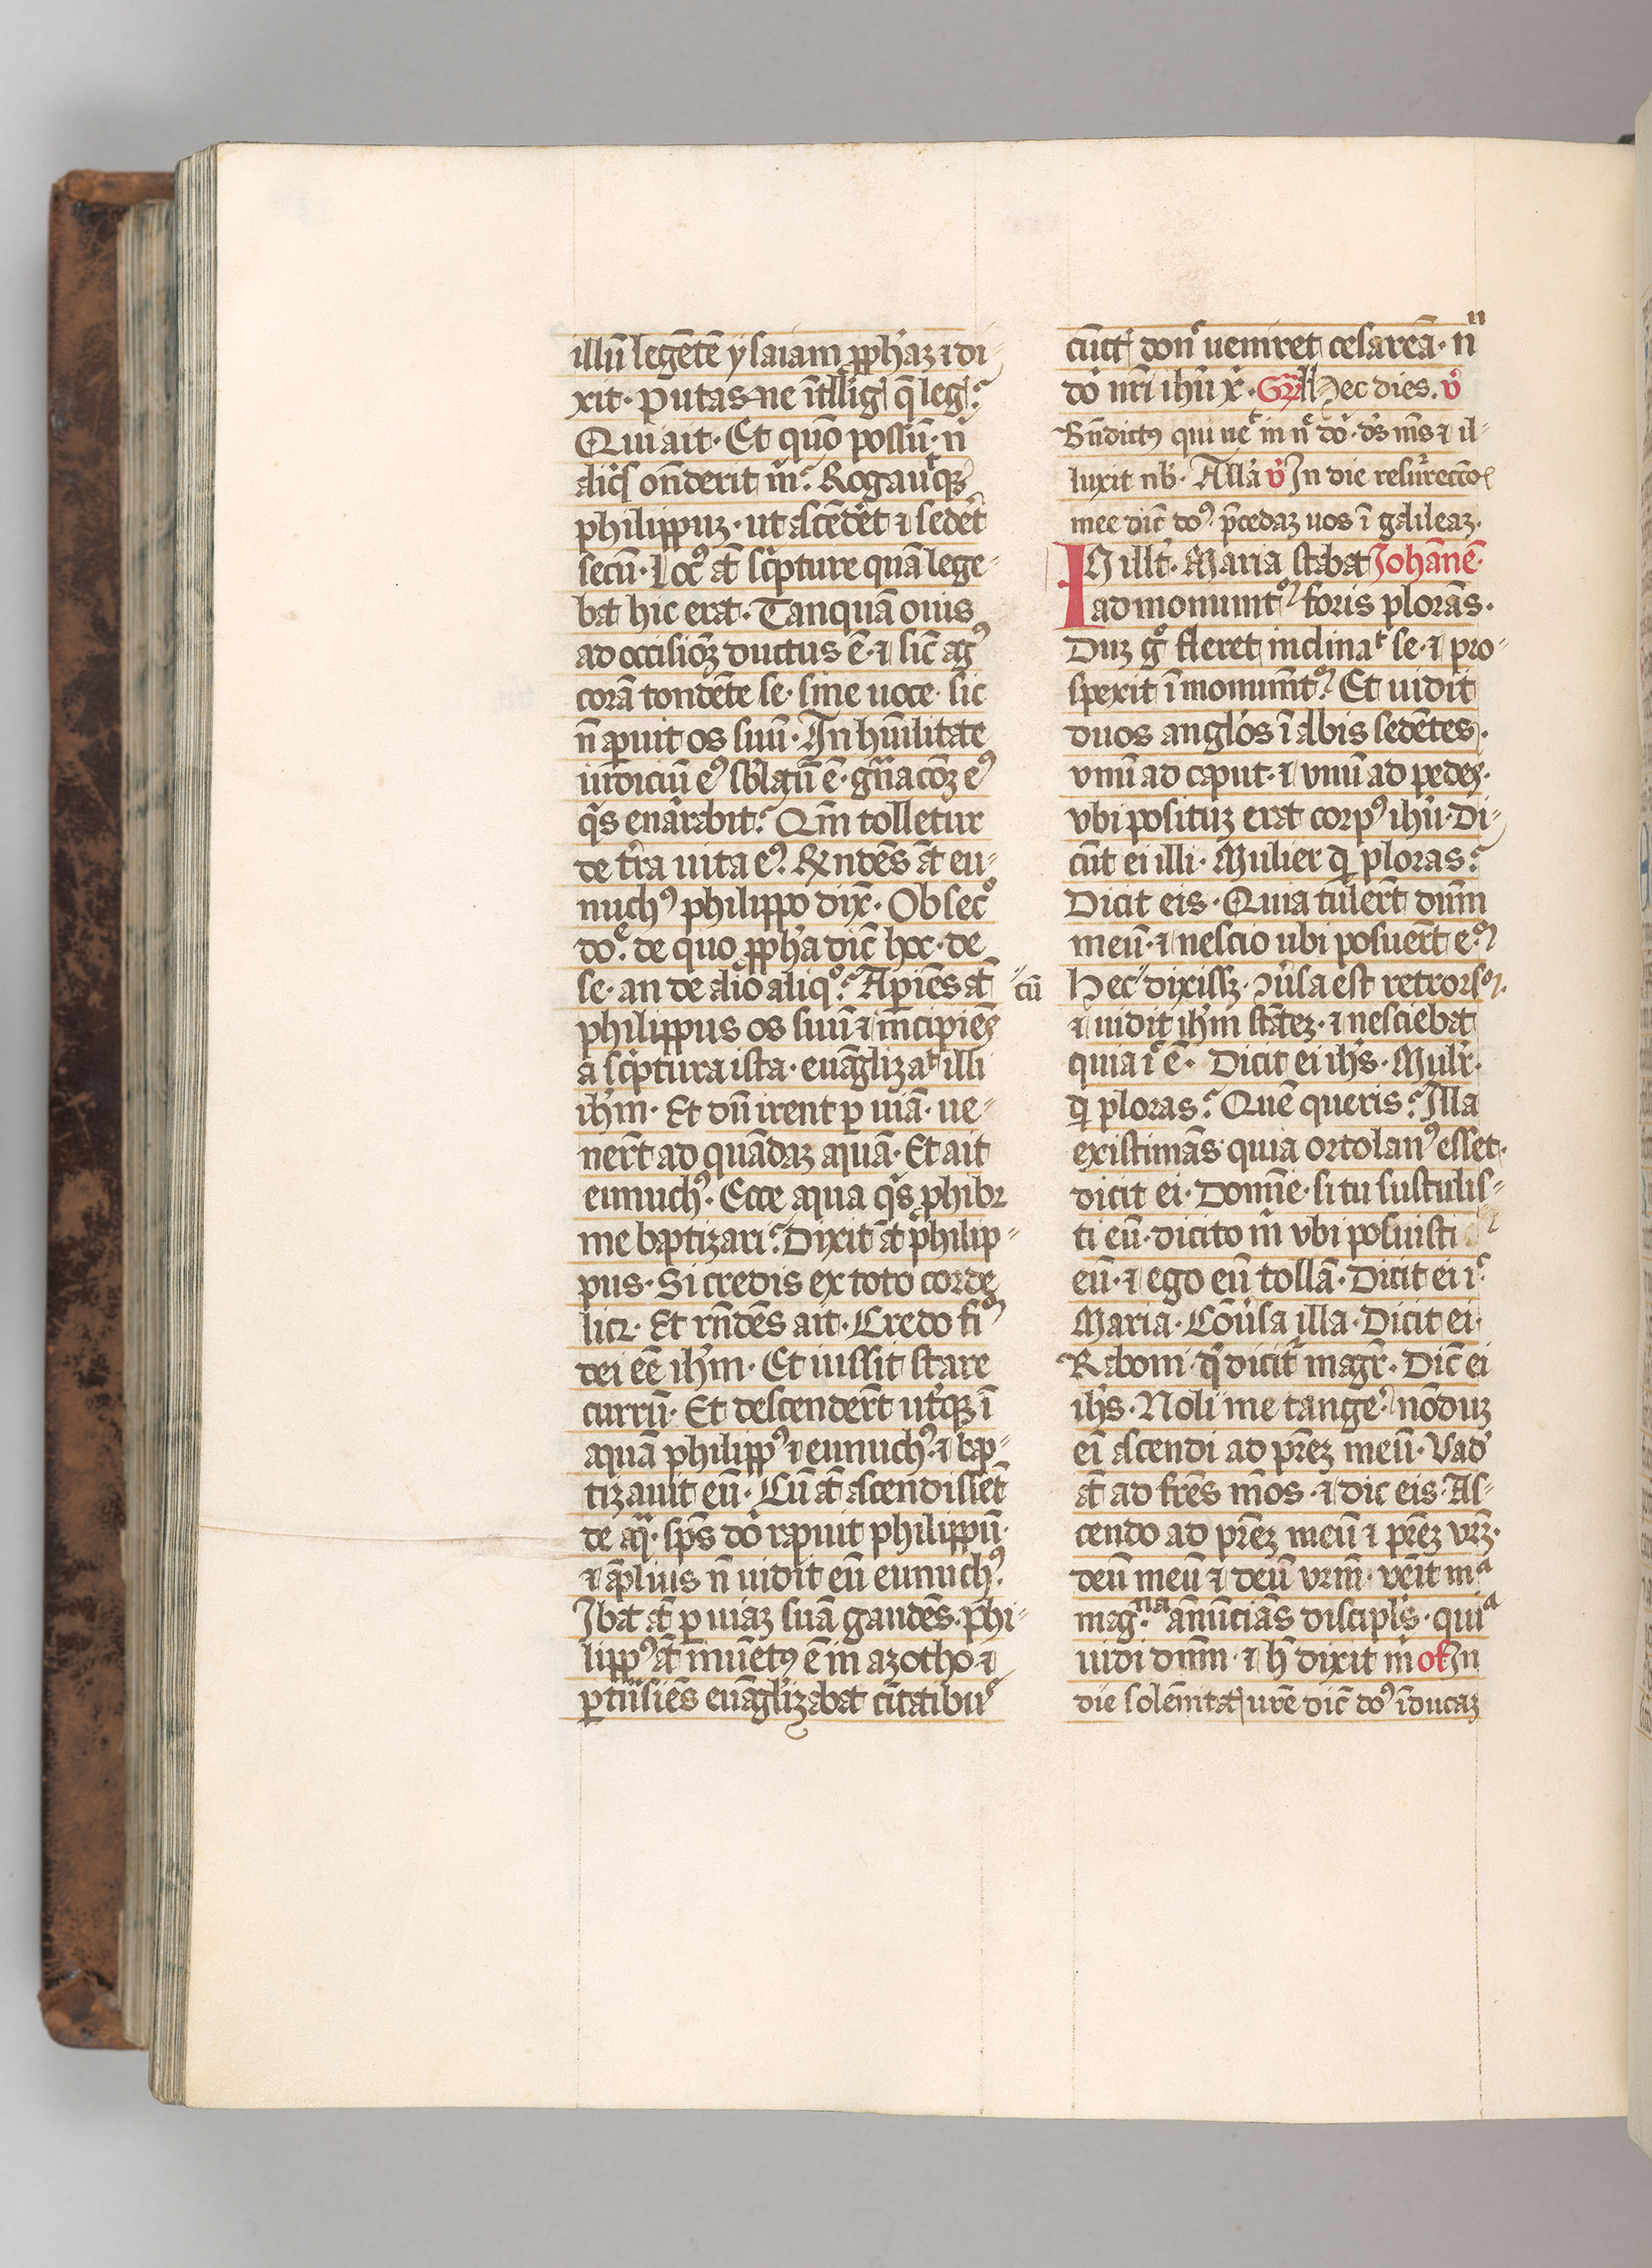 illū legētē ysaiam ꝓpħaꝫ ⁊ di-
xit· Putas-ne ītllig̃ q̄ leg̃?
Qui ait· Et quō possū· n̄
aliq̇s on̄derit m̄? Rogauitqꝫ
philippuꝫ· ut ascēdēt ⁊ sedēt
secū· Locꝰ at̄ sc̓pture quā lege-
bat hic erat· Tanquā ouis
ad occisiōꝫ ductus ē· ⁊ sic̄ agꝰ
corā tondēte se· sine uoce· sic
n̄ aꝑuit os suū· In hūilitate
iudiciū eꝰ sblatū ē· gn̄acōꝫ eꝰ
q̇s enarrabit? Qm̄ tolletur
de tr̄a uita eꝰ? R̄ndēs at̄ eu-
nuchꝰ philippo dix̄· Obsecͦ
do͛· de quo ꝓpħa dic̄ hoc· de
se· an de alio aliqͦ? Aꝑiēs at̄
philippus os suū ⁊ incipiēs
a sc̓ptura ista· euāgliza͛t illi
iħm· Et dū irent ꝑ uiā· ue-
nert̄ ad quādaꝫ aquā· Et ait
eunuchꝰ· Ecce aqua q̇s ꝓhibꝫ
me baptizari? Dixit at̄ philip-
pus· Si credis ex toto corde
licꝫ· Et rn̄dēs ait· Credo fi͛
dei eē iħm· Et iussit stare
currū· Et descendert̄ ut̓qꝫ ī
aquā philippꝰ ⁊ eunuchꝰ· ⁊ bap-
tizauit eū· Cū at̄ ascendissēt
de aqᵃ· sp̄s dō rapuit philippū·
⁊ āplius n̄ uidit eū eunuchꝰ·
Ibat at̄ ꝑ uiaꝫ suā gaudēs· phi-
lippꝰ at̄ inuētꝰ ē in azotho· ⁊
ꝑtn̄siēs euāglizabat ciuitatibus
cūct̄ don͛ ueniret cesareā· īn
dō nr̄i iħu x̄· Gr̄ Hec dies. v̓
Bn̄dictꝰ qui ue͛ in n͛ dō· ds̄ ms̄ ⁊ il-
luxit nb̄· All̄a v̓ In die resurrecco͛
mee dic̄ doꝰ p̄cedaꝫ uos ī galileaꝫ·
IN illt̓· Maria stabat Johānē·
ad monumt͛ foris plorās·
Duꝫ gͦ fleret inclina͛t se· ⁊ pro-
spexit ī monumt͛ Et uidit
duos angl̓os ī albis sedētes·
vnū ad caput· ⁊ vnū ad pedes·
vbi posituꝫ erat corpꝰ iħu· Di-
cūt ei illi· Mulier qͥ ploras?
Dicit eis· Quia tulert̄ dn̄m
meū· ⁊ nescio ubi posuert̄ e͛
tū Hec dixissꝫ· ↄu̓sa est retrors͛·
⁊ uidit iħm stātēꝫ· ⁊ nesciebat
quia i͛ ē· Dicit ei iħs· Mulr̓·
qͥ ploras? Quē queris? Illa
existimās quia ortolanꝰ esset·
dicit ei· Domīe· si tu sustulis-
ti eū· dicito m̄ vbi posuisti
eū· ⁊ ego eū tollā· Dicit ei i͛
Maria· Cōu̓sa illa· Dicit ei·
Raboni· qd̓ dicit̓ magr̄· Dic̄ ei
iħs· Noli me tange͛· nōduꝫ
eī ascendi ad pr̄eꝫ meū· Vad̓
at̄ ad fr̄es mōs· ⁊ dic eis· As-
cendo ad pr̄eꝫ meū ⁊ pr̄eꝫ vr̄ꝫ·
deū meū ⁊ deū vrm̄· Vēit mᵃ
mag·ⁿᵃ ānūciās discipl̓s· quiᵃ
uidi dn̄m· ⁊ h̄ dixit m̄ of̄ In
die solēnitat̄ ur̄e dic̄ doꝰ īducaꝫ